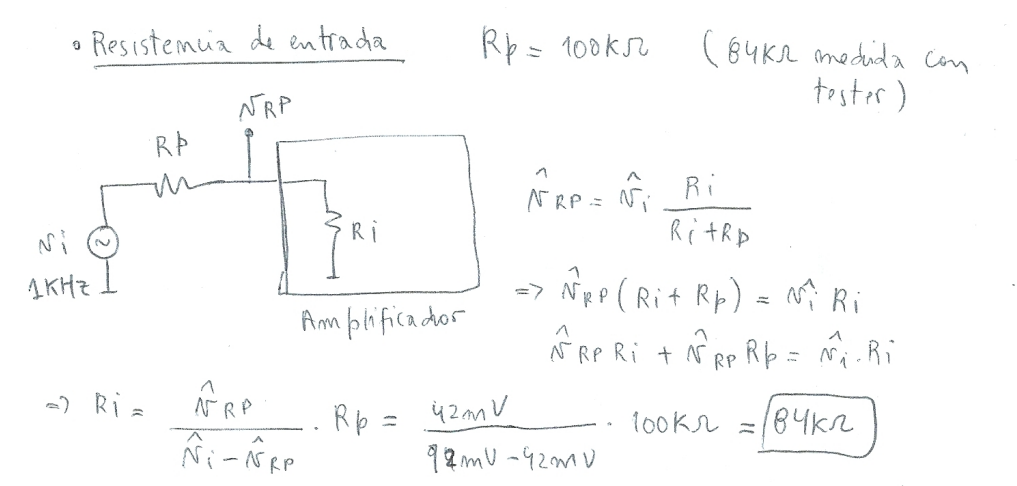 • Resistencia de entrada Rp = 100KΩ (84KΩ medida con
tester)
v̂RP
Rp
vi
1KHz
Ri
Amplificador
v̂RP = v̂i Ri / (Ri+Rp)
=> v̂RP (Ri + Rp) = v̂i Ri
v̂RP Ri + v̂RP Rp = v̂i . Ri
=> Ri = v̂RP / (v̂i - v̂RP) . Rp = 42mV / (92mV - 42mV) . 100KΩ = 84KΩ